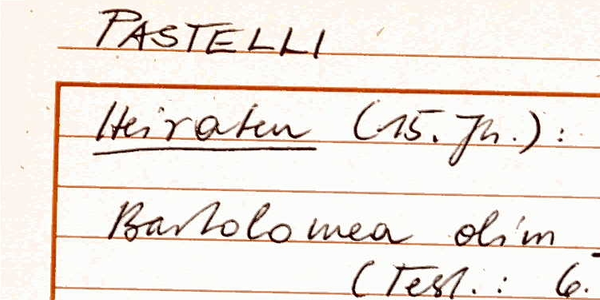 PASTELLI
Heiraten (15. Jh.):
Bartolomea olim
(Test.: 6.